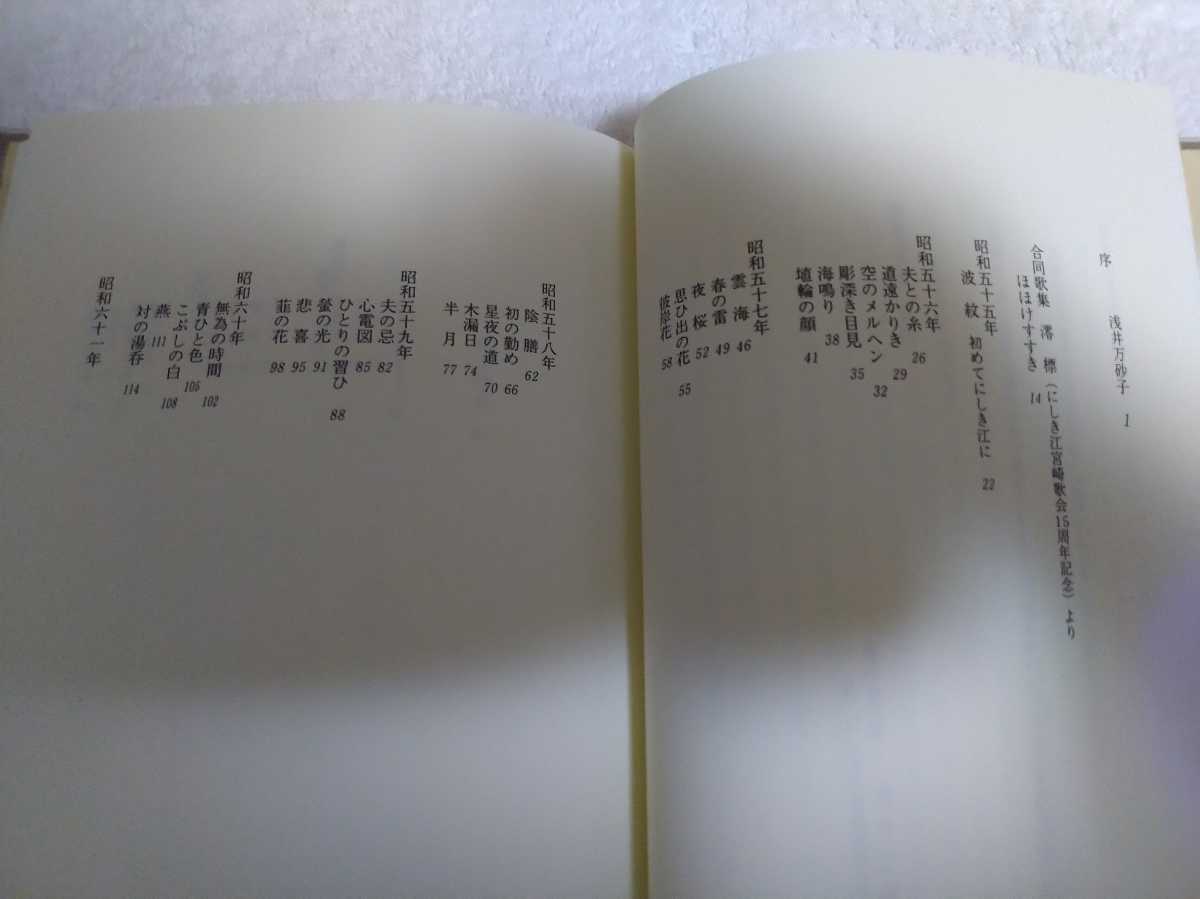 序　浅井万砂子　1
合同歌集　澪標（にしき江宮崎歌会15周年記念）より
ほほけすすき　14
昭和五十五年
波紋　初めてにしき江に　22
昭和五十六年
夫との糸　26
道遠かりき　29
空のメルヘン　32
彫深き目見　35
海鳴り　38
埴輪の顔　41
昭和五十七年
雲海　46
春の雷　49
夜桜　52
思ひ出の花　55
彼岸花　58
昭和五十八年
陰膳　62
初の勤め　66
星夜の道　70
木漏日　74
半月　77
昭和五十九年
夫の忌　82
心電図　85
ひとりの習ひ　88
螢の光　91
悲喜　95
韮の花　98
昭和六十年
無為の時間　102
青ひと色　105
こぶしの白　108
燕　111
対の湯呑　114
昭和六十一年